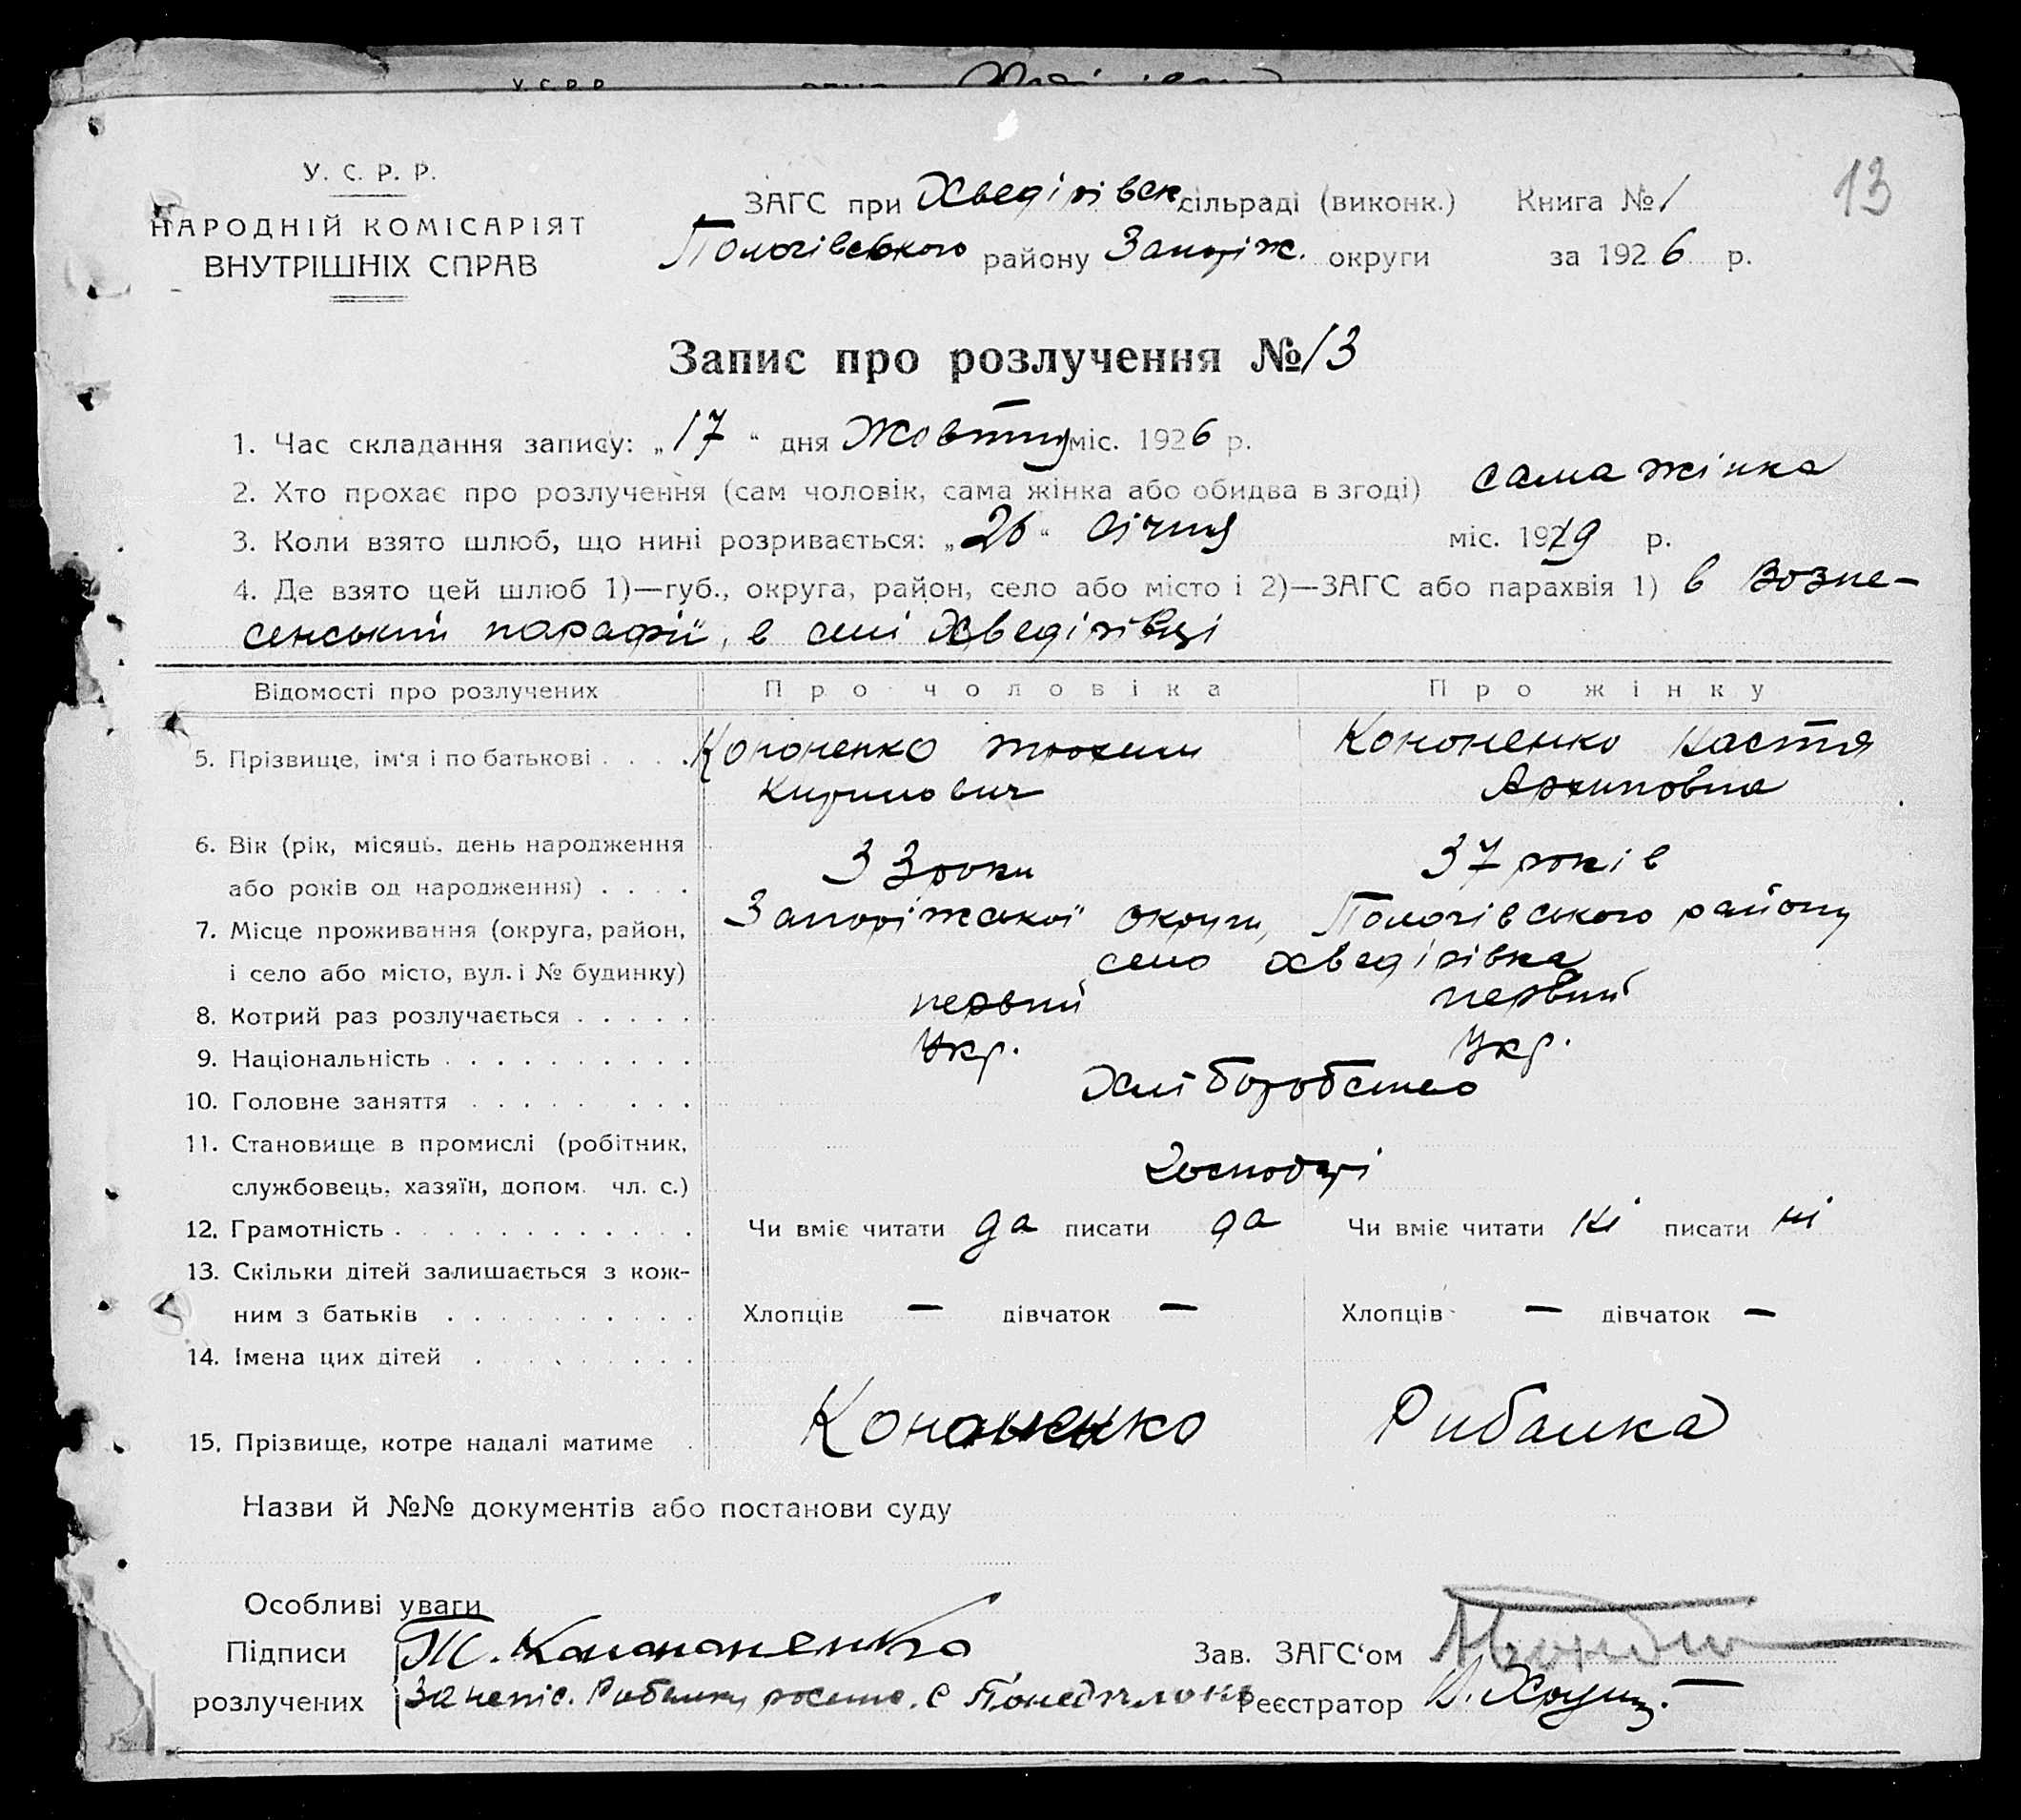 У. С. Р. Р.
НАРОДНІЙ КОМІСАРІЯТ
ВНУТРІШНІХ СПРАВ
ЗАГС при Хведірівск. сільраді (виконк.) Книга № 1
13
Пологівського району Запоріж. округи за 1926 р.
Запис про розлучення № 13
1. Час складання запису: „17“ дня Жовтня міс. 1926 р.
2. Хто прохає про розлучення (сам чоловік, сама жінка або обидва в згоді) сама жінка
3. Коли взято шлюб, що нині розривається: „26“ Січня міс. 1919 р.
4. Де взято цей шлюб 1)—губ., округа, район, село або місто і 2)—ЗАГС або парахвія 1) в Возне-
сенський парафії, в селі Хведірівці
Відомості про розлучених Про чоловіка Про жінку
5. Прізвище, ім‘я і по батькові Кононенко Трохим Кононенко Настя
Кирилович Архиповна
6. Вік (рік, місяць, день народження 33 роки 37 років
або років од народження)
7. Місце проживання (округа, район, Запоріжської округи, Пологівського району
і село або місто, вул. і № будинку) село Хведірівка
8. Котрий раз розлучається первий первий
9. Національність Укр. Укр.
10. Головне заняття Хліборобство
11. Становище в промислі (робітник,
службовець, хазяїн, допом. чл. с.) Господарі
12. Грамотність Чи вміє читати да писати да Чи вміє читати ні писати ні
13. Скільки дітей залишається з кож-
ним з батьків Хлопців — дівчаток — Хлопців — дівчаток —
14. Імена цих дітей
15. Прізвище, котре надалі матиме Кононенко Рибалка
Назви й №№ документів або постанови суду
Особливі уваги
Підписи Т. Кононенко Зав. ЗАГС‘ом
розлучених За непис. Рибалку Понедилок Реєстратор